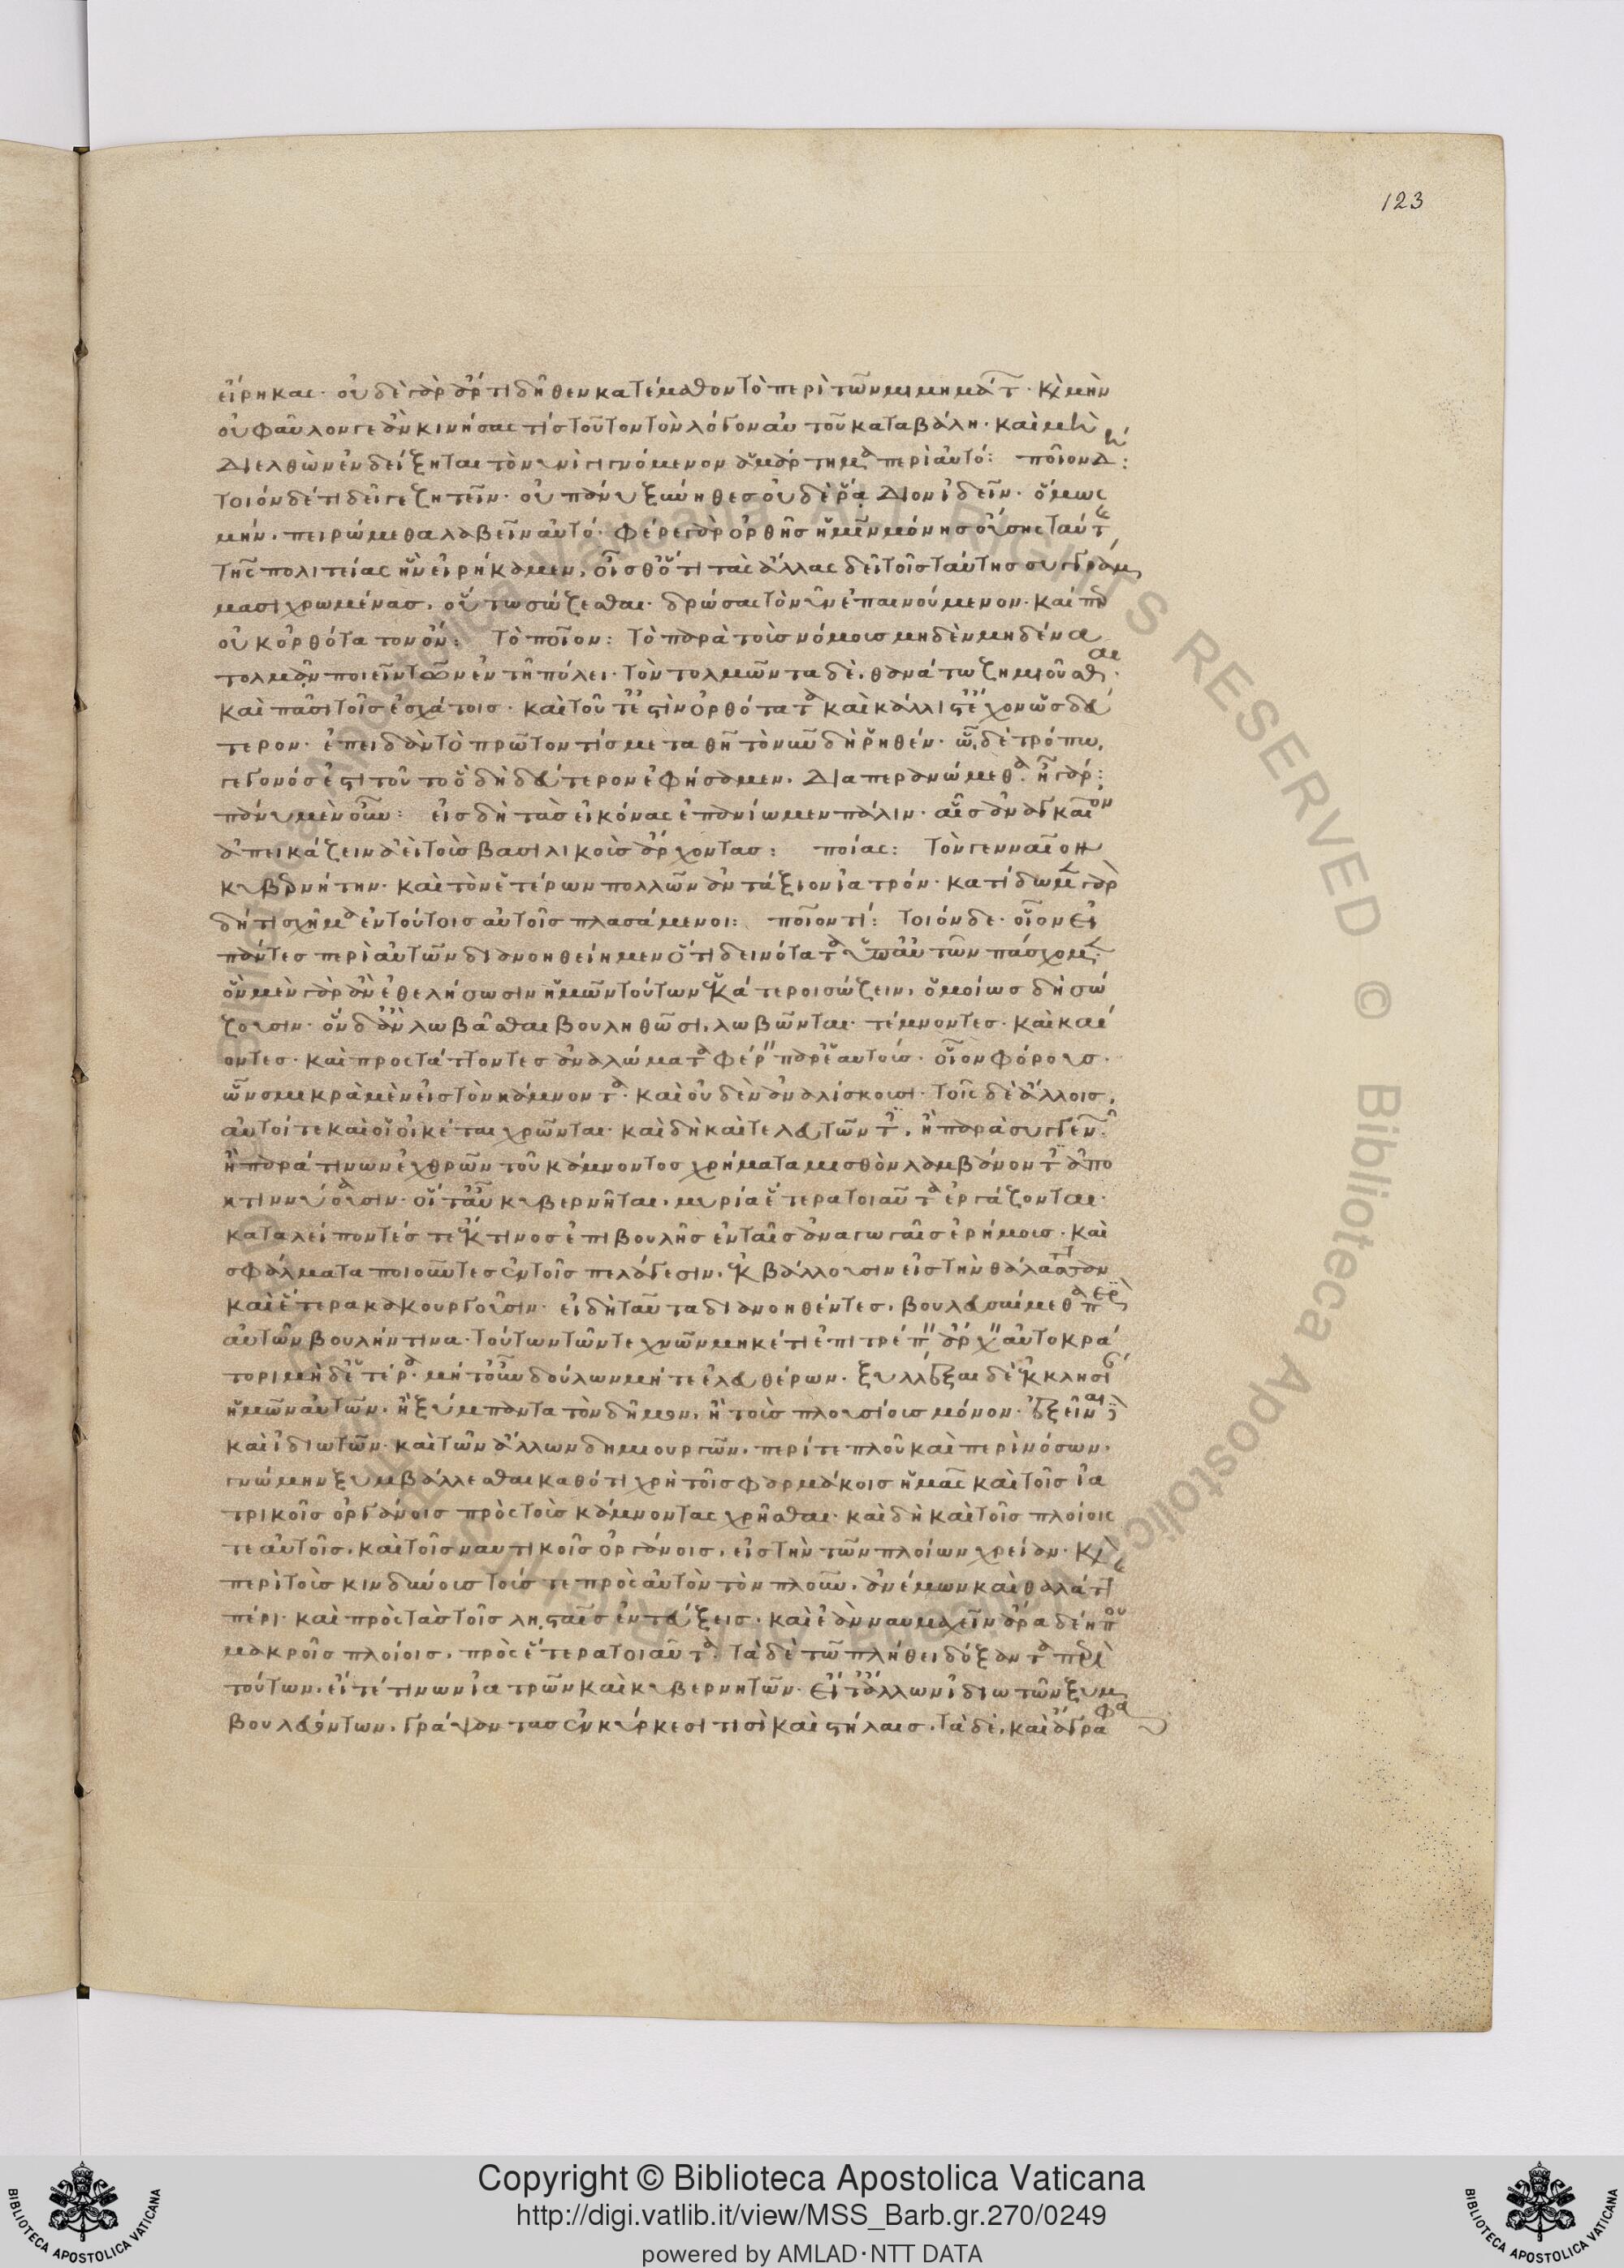 123
εἴρηκας· οὐδὲ γὰρ ἄρτι δῆθεν κατέμαθον τὸ περὶ τῶν μιμημάτ · κ μὴν
οὐ φαῦλόν γε ἂν κινήσας τίς τοῦτον τὸν λόγον αὐτοῦ καταβάλη· καὶ μὴ
διελθὼν ἐνδείξηται τὸ νυνὶ γιγνόμενον ἁμάρτημα περὶ αὐτό: ποῖον δή:
τοιόνδέ τι δεῖ γε ζητεῖν· οὐ πάνυ ξύνηθες οὐδὲ ῥάδιον ἰδεῖν· ὅμως
μήν, πειρώμεθα λαβεῖν αὐτό· φέρε γὰρ ὀρθῆς ἡμῖν μόνης οὔσης ταύτ
τῆς πολιτείας ἣν εἰρήκαμεν, οἶσθ ὅτι τὰς ἄλλας δεῖ τοῖς ταύτης συγγράμ
μασι χρωμένας, οὕτω σώζεσθαι· δρώσας τὸ νῦν ἐπαινούμενον· καίπερ
οὐκ ὀρθότατον ὄν: Τὸ ποῖον: Τὸ παρὰ τοὺς νόμους μηδὲν μηδένα
τολμᾶν ποιεῖν τῶν ἐν τῇ πόλει· τὸν τολμῶντα δὲ, θανάτω ζημιοῦσθαι
καὶ πᾶσι τοῖς ἐσχάτοις· καὶ τοῦτ ἔστιν ὀρθότατα καὶ κάλλιστ ἔχον ὡς δεύ
τερον· ἐπειδὰν τὸ πρῶτόν τίς μεταθῇ τὸ νῦν δὴ ῥηθέν· ᾧ, δὲ τρόπω,
γεγονός ἐστι τοῦτο ὃ δὴ δεύτερον ἐφήσαμεν, διαπερανώμεθα· ἢ γάρ:
πάνυ μὲν οὖν: εἰς δὴ τὰς εἰκόνας ἐπανίωμεν πάλιν· αἷς ἀναγκαῖον
ἀπεικάζειν ἀεὶ τοὺς βασιλικοὺς ἄρχοντας: ποίας: Τὸν γενναῖον
κυβερνήτην· καὶ τὸν ἑτέρων πολλῶν ἀντάξιον ἰατρόν· κατίδωμεν γὰρ
δή τι σχῆμα ἐν τούτοις αὐτοῖς πλασάμενοι: ποῖόν τι: τοιόνδε· οἷον εἰ
πάντες περὶ αὐτῶν διανοηθείημεν ὅτι δεινότατα ὑπ αὐτῶν πάσχομεν
ὃν μὲν γὰρ ἂν ἐθελήσωσιν ἡμῶν τούτων ἑκάτεροι σώζειν, ὁμοίως δὴ σώ
ζουσιν· ὃν δ ἂν λωβᾶσθαι βουληθῶσι, λωβῶνται· τέμνοντες· καὶ καί
οντες· καὶ προστάττοντες ἀναλώματα φέρειν παρ ἑαυτοὺς· οἷον φόρους·
ὧν σμικρὰ μὲν εἰς τὸν κάμνοντα· καὶ οὐδὲν ἀναλίσκουσι· τοῖς δὲ ἄλλοις,
αὐτοί τε καὶ οἱ οἰκέται χρῶνται· καὶ δὴ καὶ τελευτῶντ, ἢ παρὰ συγγεν
ἢ παρά τινων ἐχθρῶν τοῦ κάμνοντος χρήματα μισθὸν λαμβάνοντ ἀπο
κτιννύασιν· οἵ τ αὖ κυβερνῆται, μυρία ἕτερα τοιαῦτα ἐργάζονται·
καταλείποντές τε ἔκ τινος ἐπιβουλῆς ἐν ταῖς ἀναγωγαῖς ἐρήμους· καὶ
σφάλματα ποιοῦντες ἐν τοῖς πελάγεσιν, ἐκβάλλουσιν εἰς τὴν θάλατταν
καὶ ἕτερα κακουργοῦσιν· εἰ δὴ ταῦτα διανοηθέντες, βουλευσαίμεθα περὶ
αὐτῶν βουλήν τινα· τούτων τῶν τεχνῶν μηκέτι ἐπιτρέπειν ἄρχειν αὐτοκρά
τορι μὴ δ ἑτέρα· μήτ οὖν δούλων μήτε ἐλευθέρων, ξυλλέξαι δ ἐκκλησί
ἡμῶν αὐτῶν, ἢ ξύμπαντα τὸν δῆμον, ἢ τοὺς πλουσίους μόνον· ἐξεῖναι δὲ
καὶ ἰδιωτῶν· καὶ τῶν ἄλλων δημιουργῶν, περί τε πλοῦ καὶ περὶ νόσων,
γνώμην ξυμβάλλεσθαι καθότι χρὴ τοῖς φαρμάκοις ἡμᾶς καὶ τοῖς ἰα
τρικοῖς ὀργάνοις πρὸς τοὺς κάμνοντας χρῆσθαι· καὶ δὴ καὶ τοῖς πλοίοις
τε αὐτοῖς, καὶ τοῖς ναυτικοῖς ὀργάνοις, εἰς τὴν τῶν πλοίων χρείαν· κ
περὶ τοὺς κινδύνους τούς τε πρὸς αὐτὸν τὸν πλοῦν, ἀνέμων καὶ θαλάττ
πέρι· καὶ πρὸς τὰς τοῖς λῃσταῖς ἐντεύξεις· καὶ ἐὰν ναυμαχεῖν ἄρα δέη που
μακροῖς πλοίοις, πρὸς ἕτερα τοιαῦτα· τὰ δὲ τῷ πλήθει δόξαντα περὶ
τούτων, εἴτέ τινων ἰατρῶν καὶ κυβερνητῶν· εἴτ ἄλλων ἰδιωτῶν ξυμ
βουλευόντων, γράψαντας ἐν κύρβεσί τισὶ καὶ στήλαις, τὰ δὲ, καὶ ἄγραφα
Copyright © Biblioteca Apostolica Vaticana
http://digi.vatlib.it/view/MSS_Barb.gr.270/0249
powered by AMLAD·NTT DATA